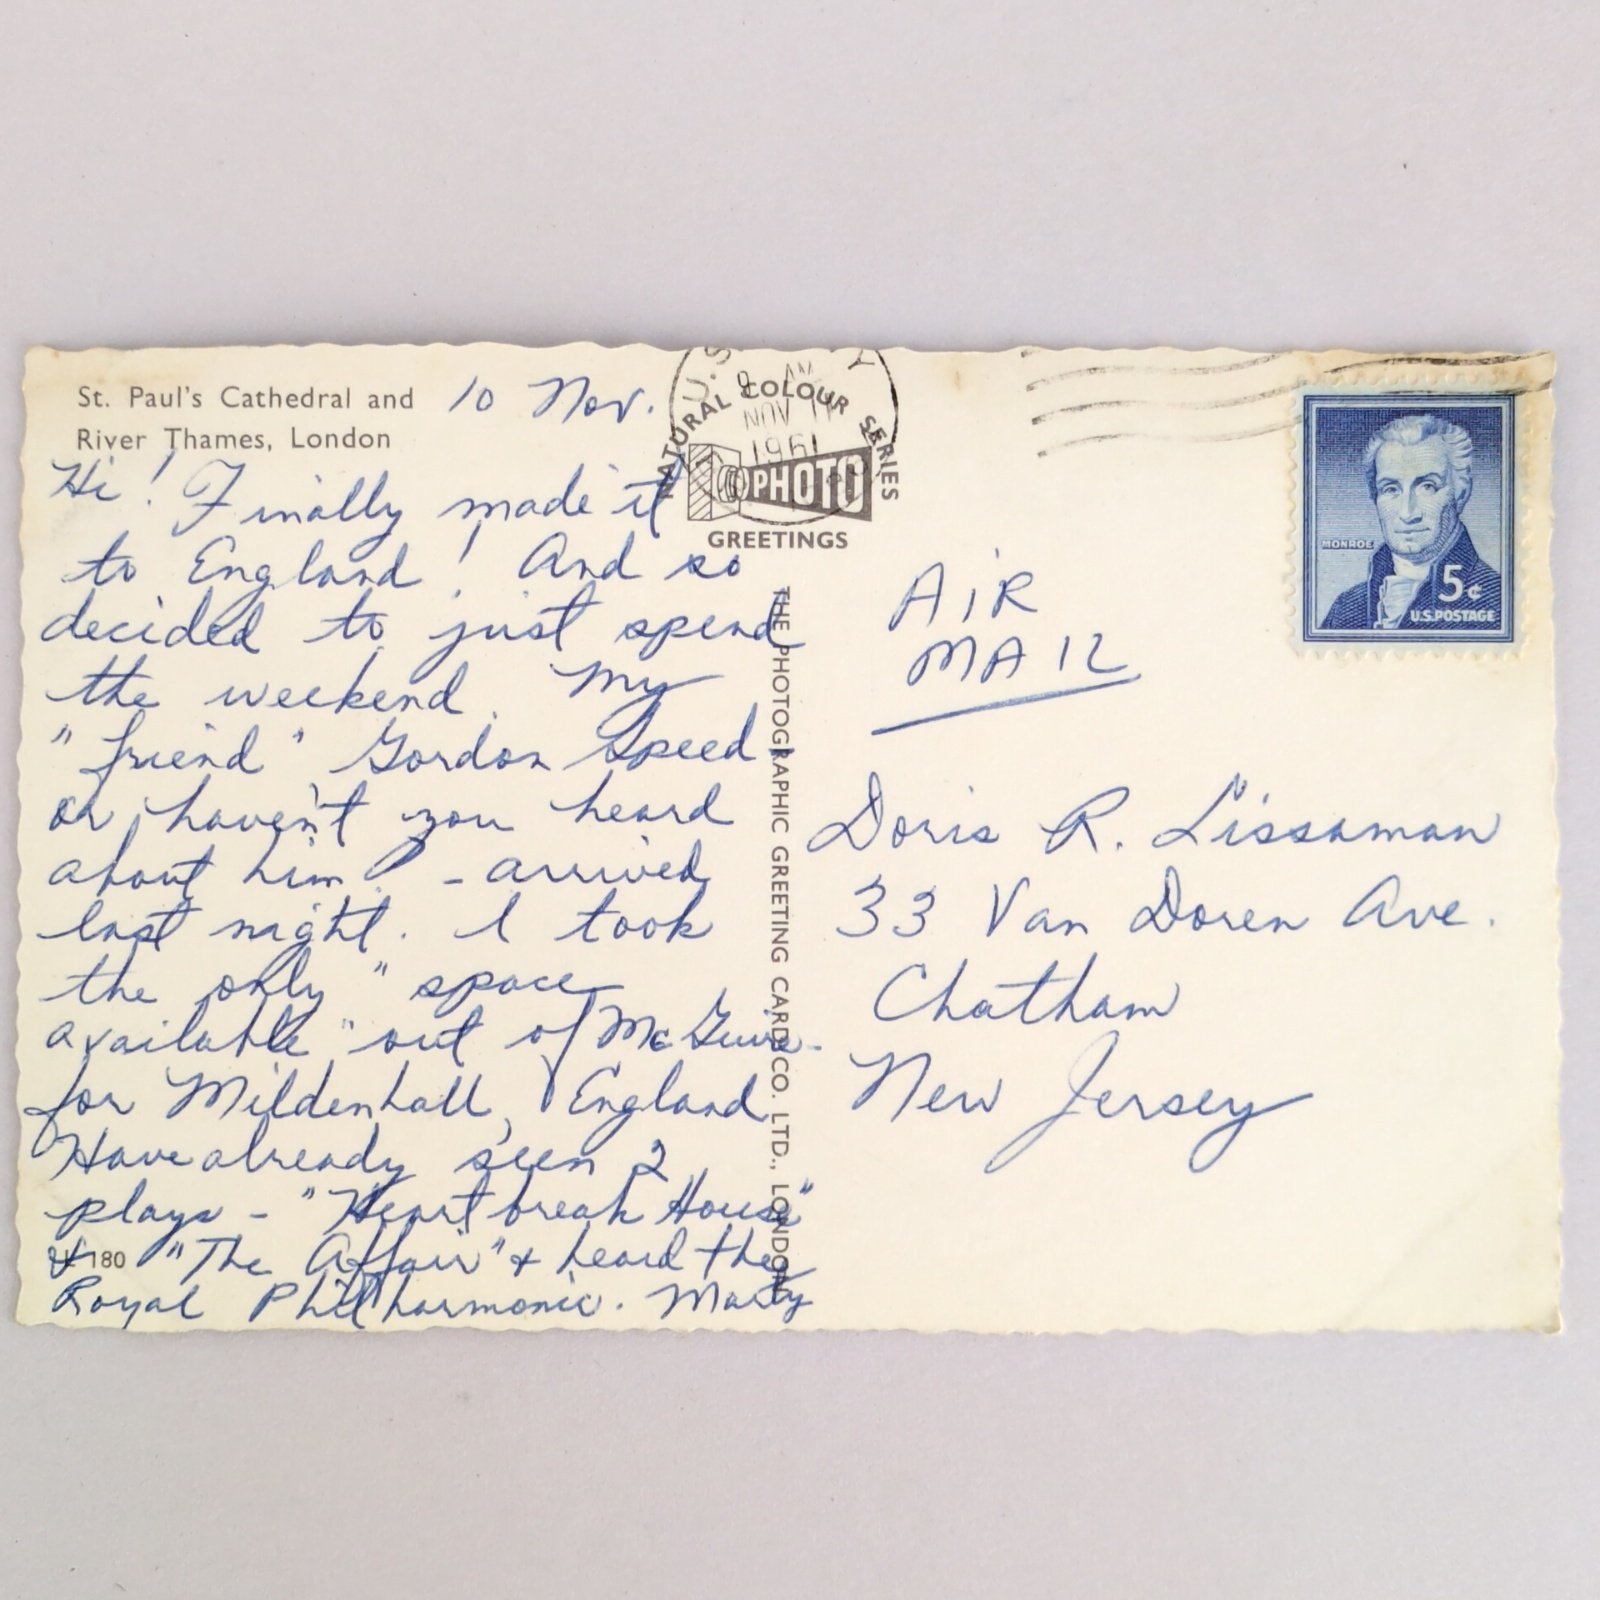 St. Paul's Cathedral and
River Thames, London
10 Nov.
Hi! Finally made it
to England! And so
decided to just spend
the weekend. My
"friend" Gordon Speed
or haven't you heard
about him? - arrived
last night. I took
the only "space
available" out of McGuire
for Mildenhall, England
Have already seen 2
plays - "Heartbreak House"
& "The Affair" & heard the
Royal Philharmonic. Marty
180
NATURAL COLOUR SERIES
PHOTO
GREETINGS
U.S.
NOV
1961
THE PHOTOGRAPHIC GREETING CARD CO. LTD., LONDON
MONROE
5¢
U.S. POSTAGE
AIR
MAIL
Doris R. Lissaman
33 Van Doren Ave.
Chatham
New Jersey